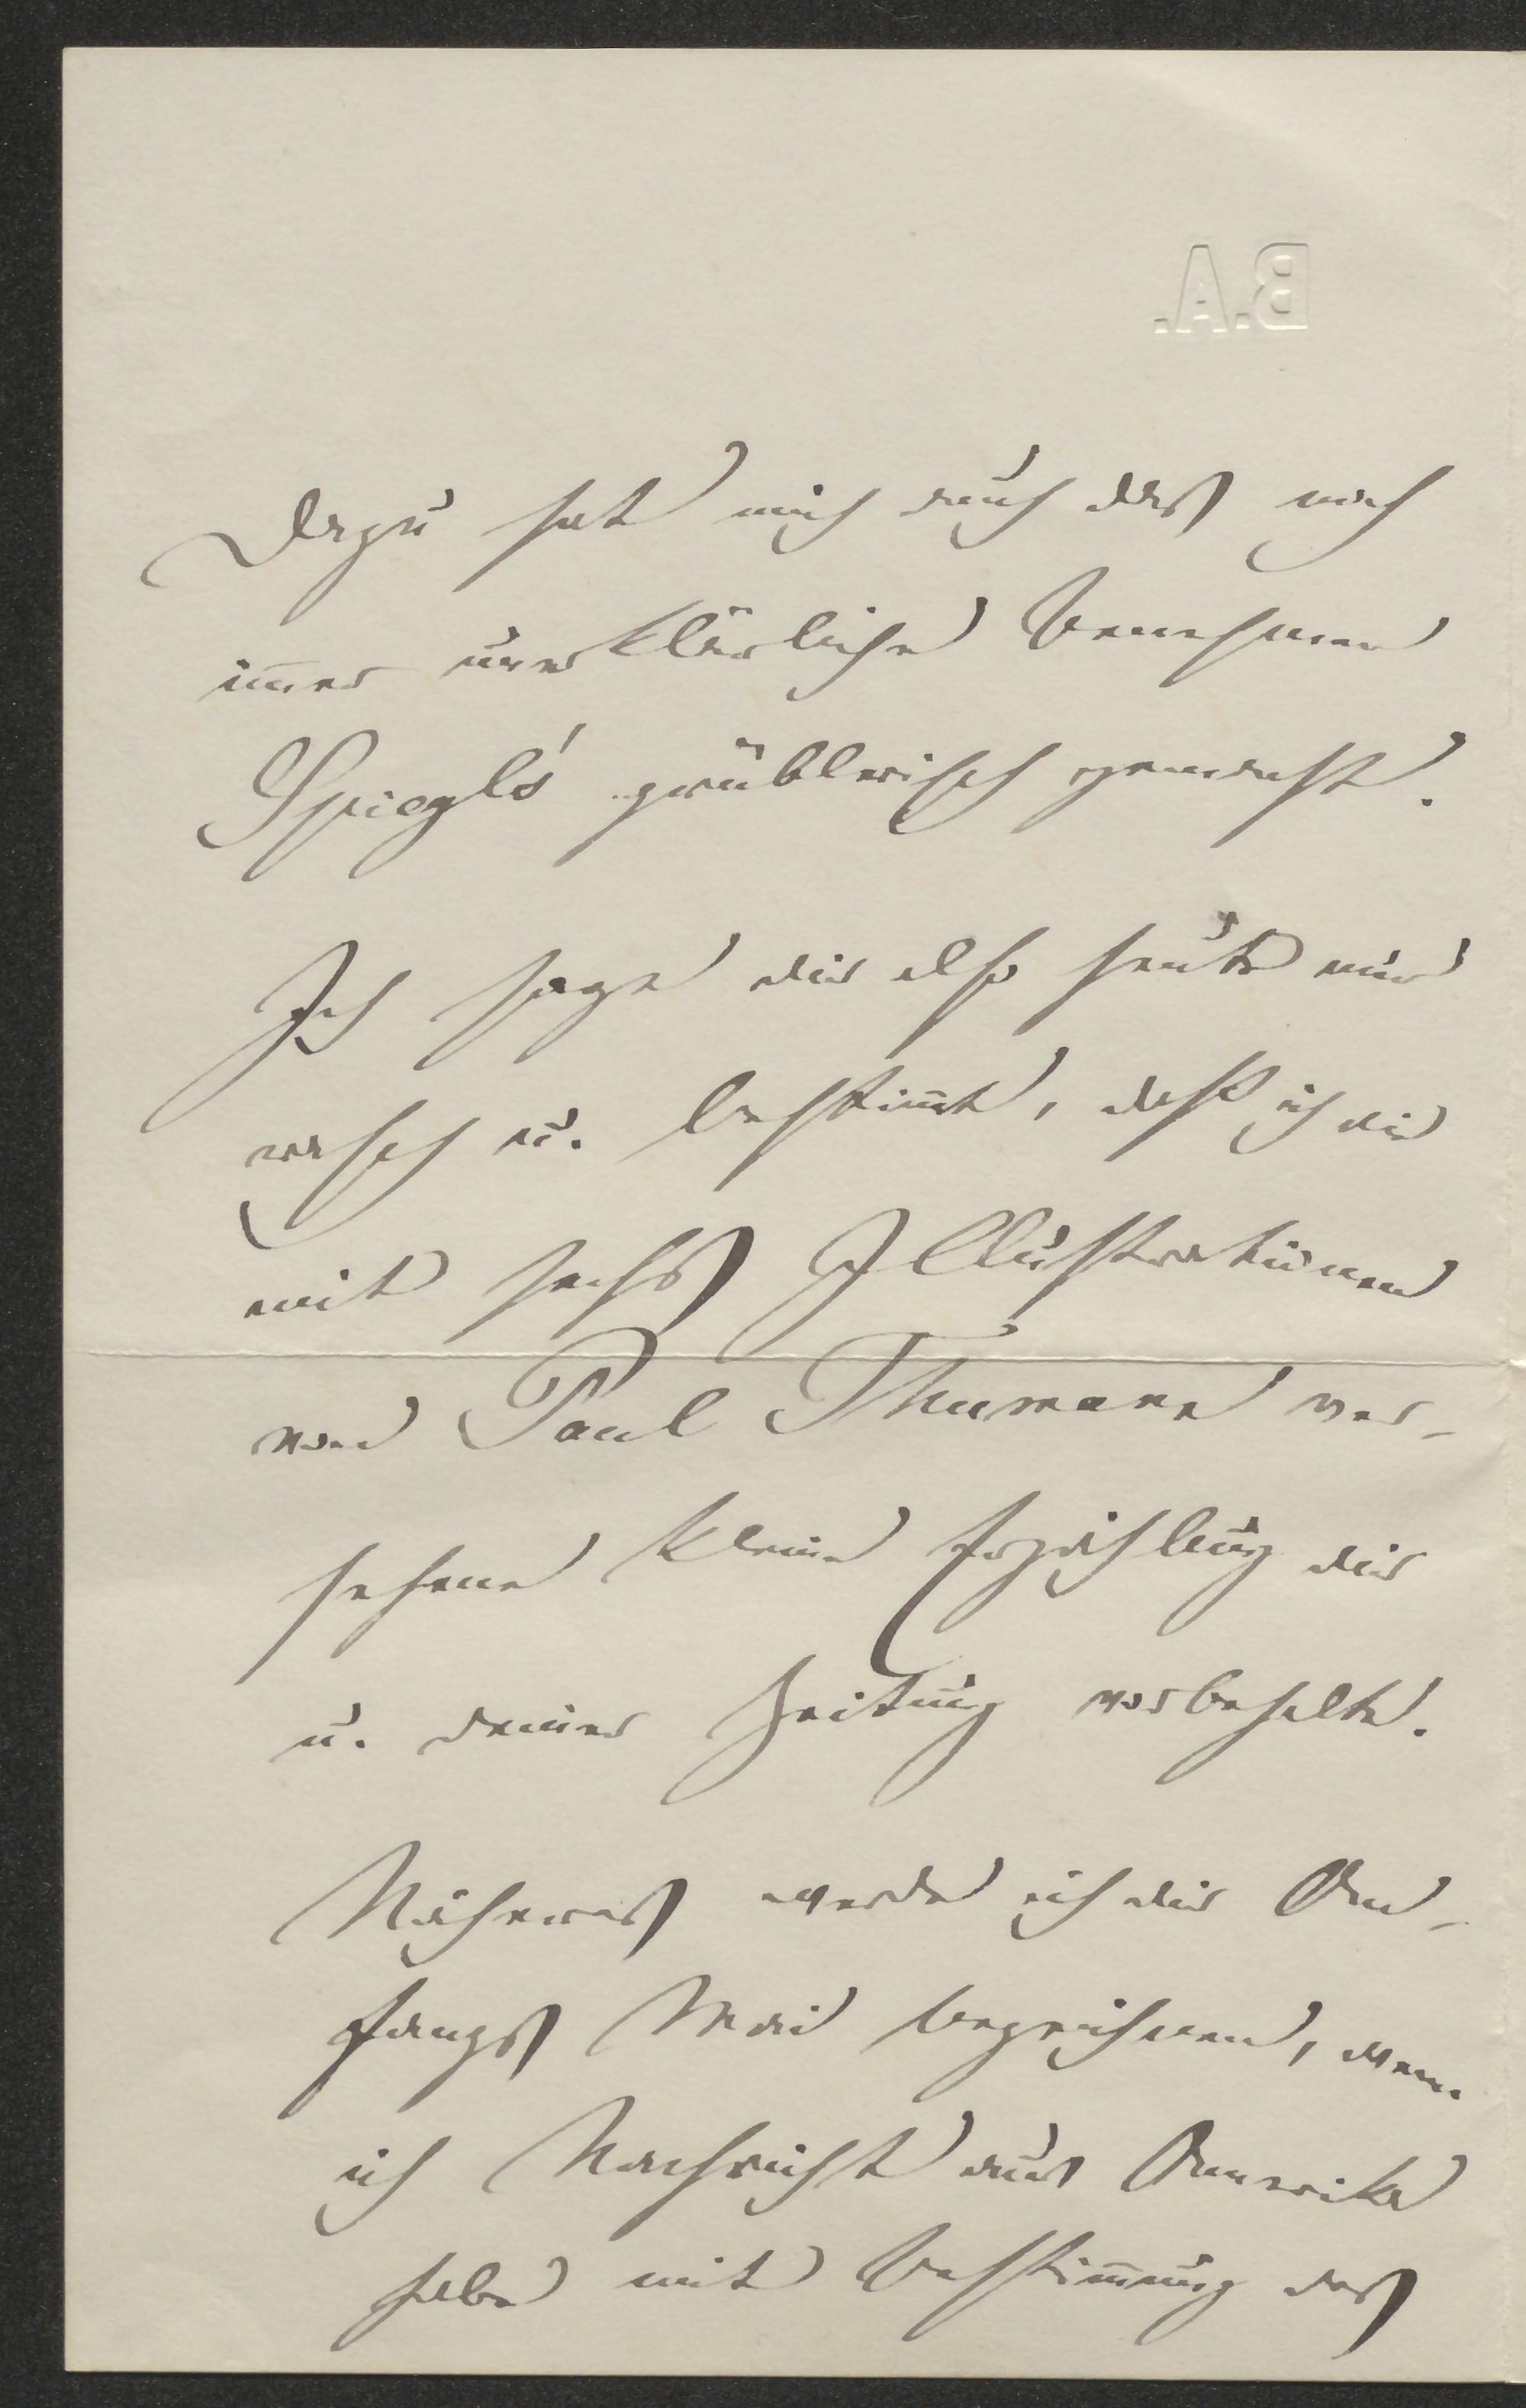 B.A.
Dazu hat mich auch das noch
im̄er unerklärliche Benehmen
Spiegls' grüblerisch gemacht.
Ich sage dir also heute nur
rasch u. bestim̄t, daß ich die
mit sechs Illustrationen
von Paul Thumann ver-
sehene kleine Erzählung dir
u. deiner Zeitung vorbehalte.
Näheres werde ich dir An-
fangs Mai bezeichnen, wenn
ich Nachricht aus Amerika
habe mit Bestim̄ung des